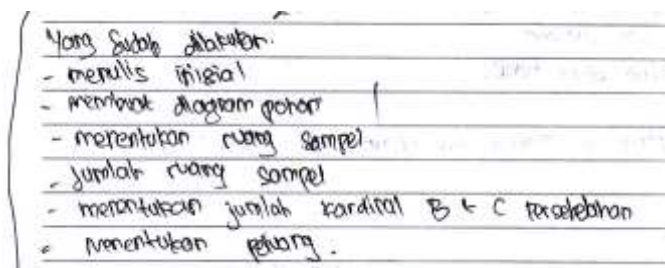 Yang Sudah dilakukan.
- menulis inisial
- membuat diagram pohon
- menentukan ruang sampel
- jumlah ruang sampel
- menentukan jumlah kardinal B & C
- menentukan peluang.